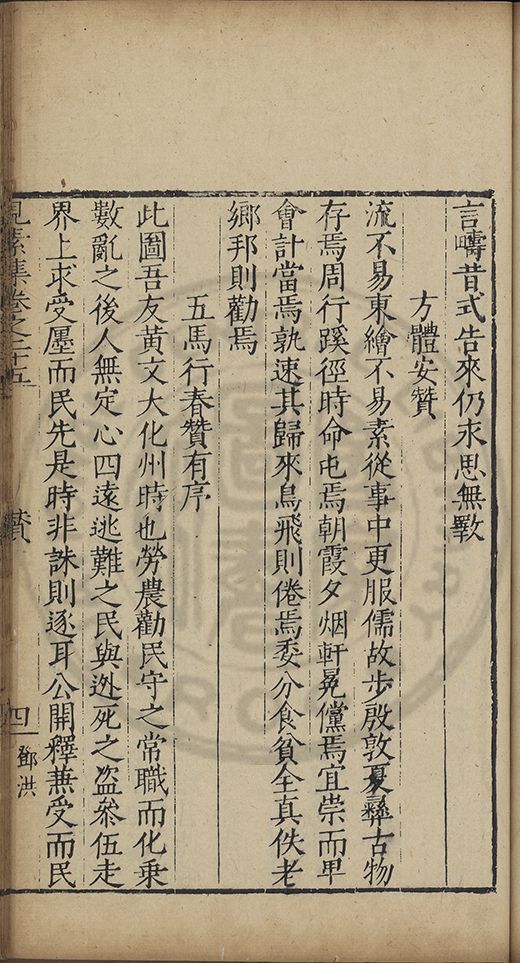 言疇昔式告來仍求思無斁
方體安贊
流不易東繪不易素從事中更服儒故步殷敦夏彝古物
存焉周行蹊徑時命屯焉朝霞夕烟軒冕儻焉宜崇而卑
會計當焉孰速其歸來鳥飛則倦焉委分食貧全真佚老
鄉邦則勸焉
五馬行春贊有序
此圖吾友黃文大化州時也勞農勸民守之常職而化乗
數亂之後人無定心四遠逃難之民與逃死之盗叅伍走
界上求受廛而民先是時非誅則逐耳公開釋兼受而民
見素集卷之二十五
贊
四
鄧洪